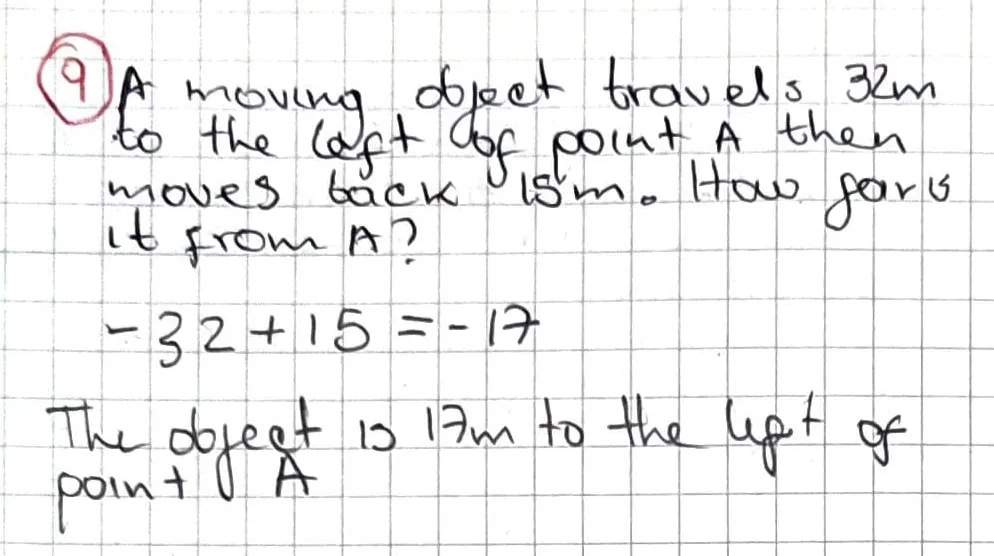 9 A moving object travels 32m
to the left of point A then
moves back 15m. How far is
it from A?
-32+15=-17
The object is 17m to the left of
point A